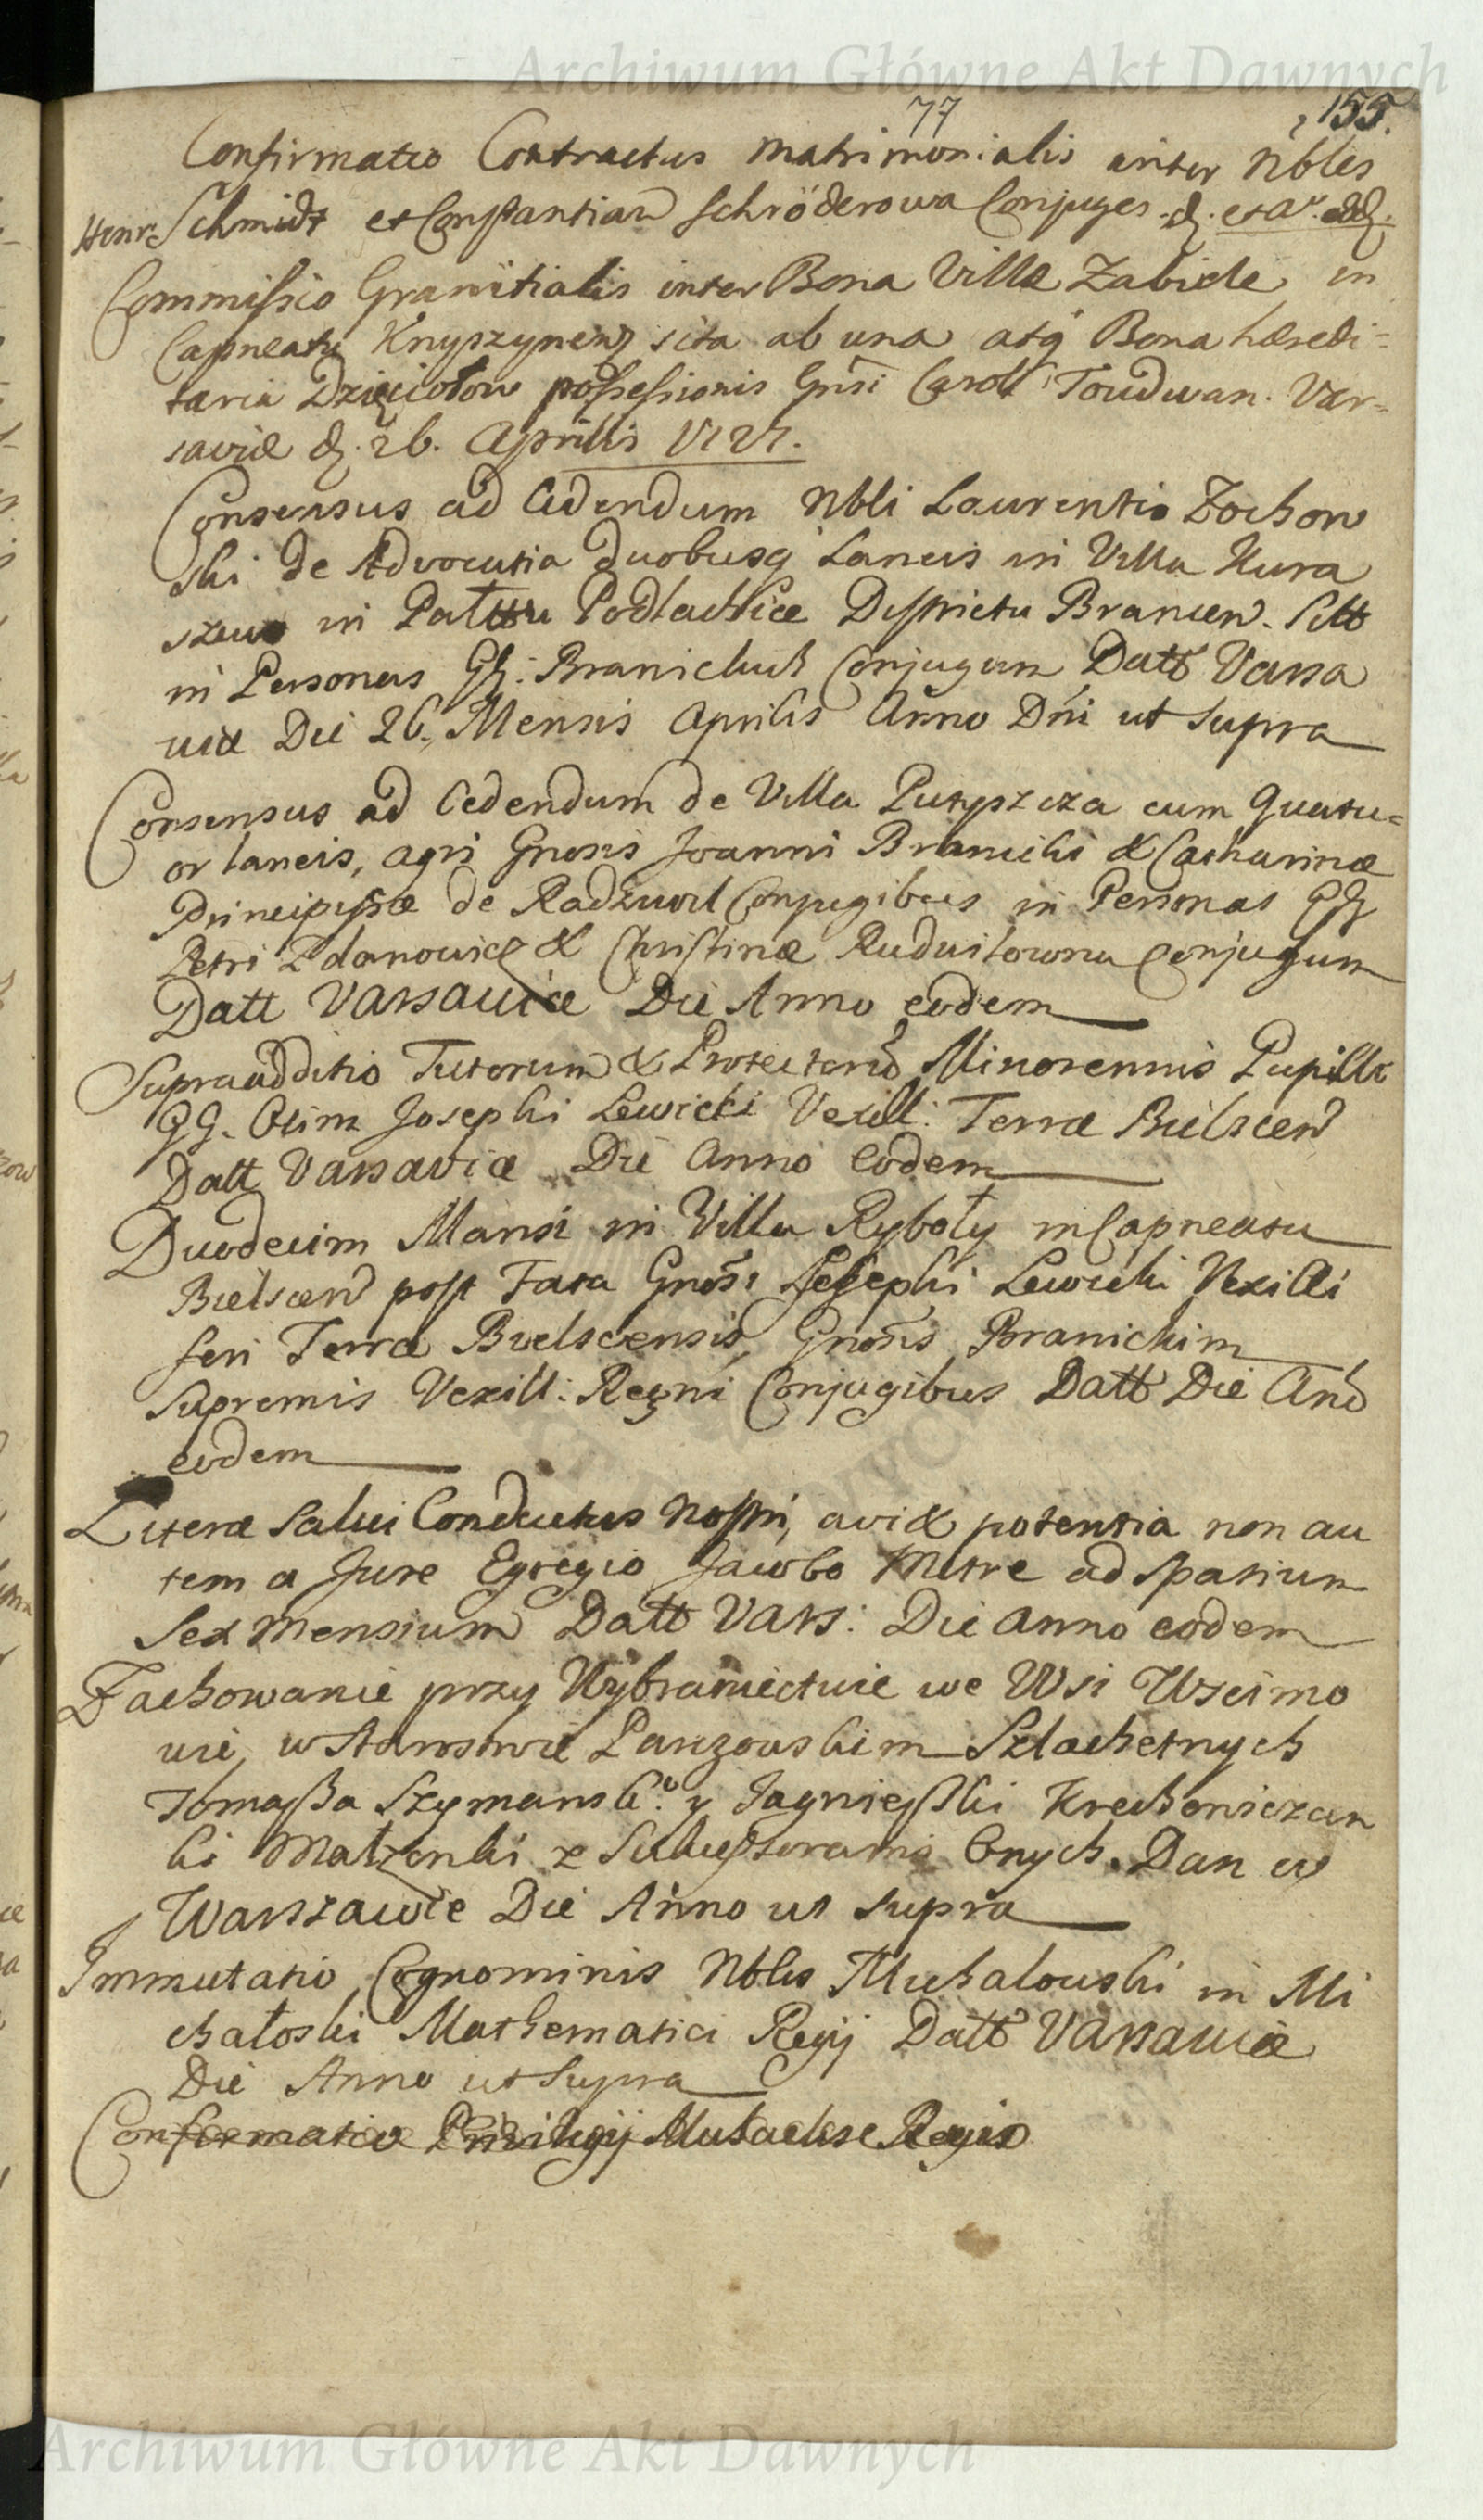 Archiwum Główne Akt Dawnych
77
155.
Confirmatio Contractus Matrimonialis inter Nbles
Henr. Schmidt et Constantiam Schröderowa Conjuges. d. et aº.
Commissio Granitialis inter Bona Villæ Zabiele in
Capneatu Knyszynen sita ab una atq Bona hæredi=
taria Dzięciołow possessionis Gnsi Caroli Toudwan. Var=
saviæ d. 26. Aprilis
Consensus ad Cedendum Nbli Laurentio Zochow
ski de Advocatia duobusq Laneis in Villa Kura
szewo in Palttu Podlachiæ Districtu Brancen. Sitt
in Personas GG: Branickich Conjugum Datt Varsa
viæ Die 26. Mensis Aprilis Anno Dni ut supra
Consensus ad Cedendum de Villa Putyszcza cum Quatu=
or laneis, agri Gnosis Joanni Branicki & Catharinæ
Principissæ de Radziwil Conjugibus in Personas GG
Petri Zdanowicz & Christinæ Ruduitowna Conjugum
Datt Varsaviæ Die Anno eodem
Supraadditio Tutorum & Protectorum Minorennis Pupillæ
GG. Olim Josephi Lewicki Vexill: Terræ Bielscen
Datt Varsaviæ Die Anno Eodem
Duodecim Mansi in Villa Ryboły in Capneatu
Bielscen post Fata Gnosi Josephi Lewicki Vexilli
feri Terræ Bielscensis, Gnosis Branickim
Supremis Vexill: Regni Conjugibus Datt Die Ano
eodem
Literæ Salvi Conductus Nostri, a vi & potentia non au
tem a Jure Egregio Jacobo Metre ad spatium
Sex Mensium Datt Vars: Die Anno eodem
Zachowanie przy Wybraniectwie we Wsi Uscimo
wie, w Starostwie Parczowskim Szlachetnych
Tomasza Szymanskº: y Jagnieszki Krechowiczan
ki Małzonki z Sukcessorami Onych. Dan w
Warszawie Die Anno ut supra
Immutatio Cognominis Nblis Michalouski in Mi
chałoski Mathematici Regij Datt Varsaviæ
Die Anno ut Supra
Confirmatio Privilegij
Archiwum Główne Akt Dawnych